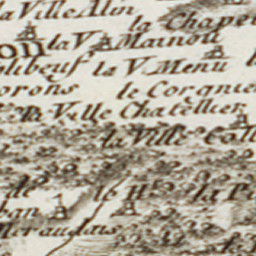 la Ville Alin
la Chapel
la V. Mainou
olibeuf la V. Menu
orons le Corgnie
la Ville Chatellier
la Ville
de le Hte la P
ban
Meraudais